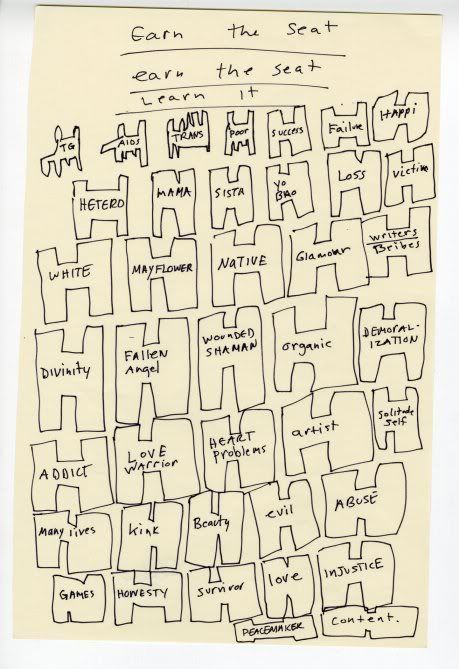 Earn the seat
earn the seat
Learn It
TG
AIDS
TRANS
Poor
SUCCESS
Failure
HAPPi
HETERO
MAMA
SISTA
yo
BRO
LOSS
victim
WHITE
MAYFLOWER
NATIVE
Glamour
writers
Beibes
Divinity
FALLEN
Angel
WOUNDED
SHAMAN
organic
DEMORAL-
IZATION
ADDICT
LOVE
WARRIOR
HEART
Problems
artist
Solitude
Self
Many lives
kink
Beauty
evil
ABUSE
GAMES
HONESTY
Survivor
love
INJUSTICE
PEACEMAKER
Content.